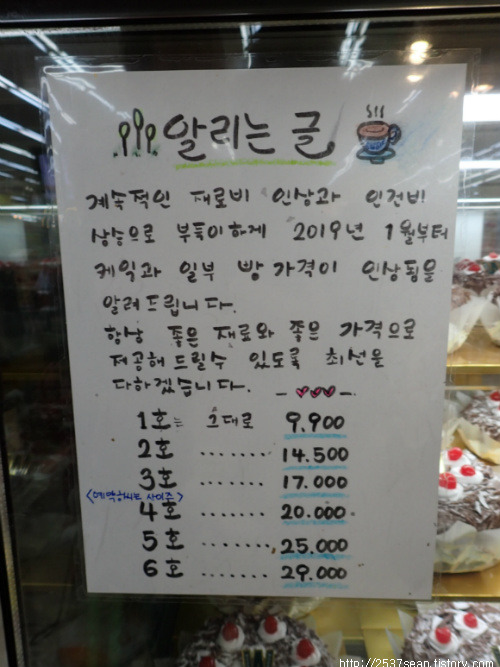 알리는 글
계속적인 재료비 인상과 인건비
상승으로 부득이하게 2019년 1월부터
케익과 일부 빵 가격이 인상됨을
알려드립니다.
항상 좋은 재료와 좋은 가격으로
제공해 드릴수 있도록 최선을
다하겠습니다.
1호는 그대로 9.900
2호 ........ 14.500
3호 ........ 17.000
4호 ........ 20.000
5호 ........ 25.000
6호 ........ 29.000
http://2537sean.tistory.com